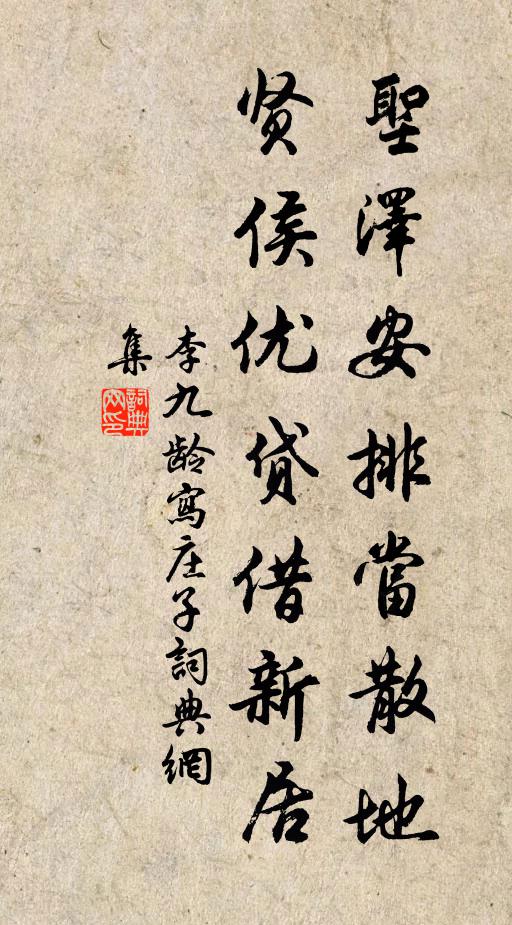 聖澤安排當散地
贤侯优贷借新居
李九龄寫庄子詞典網
集
詞典
网印